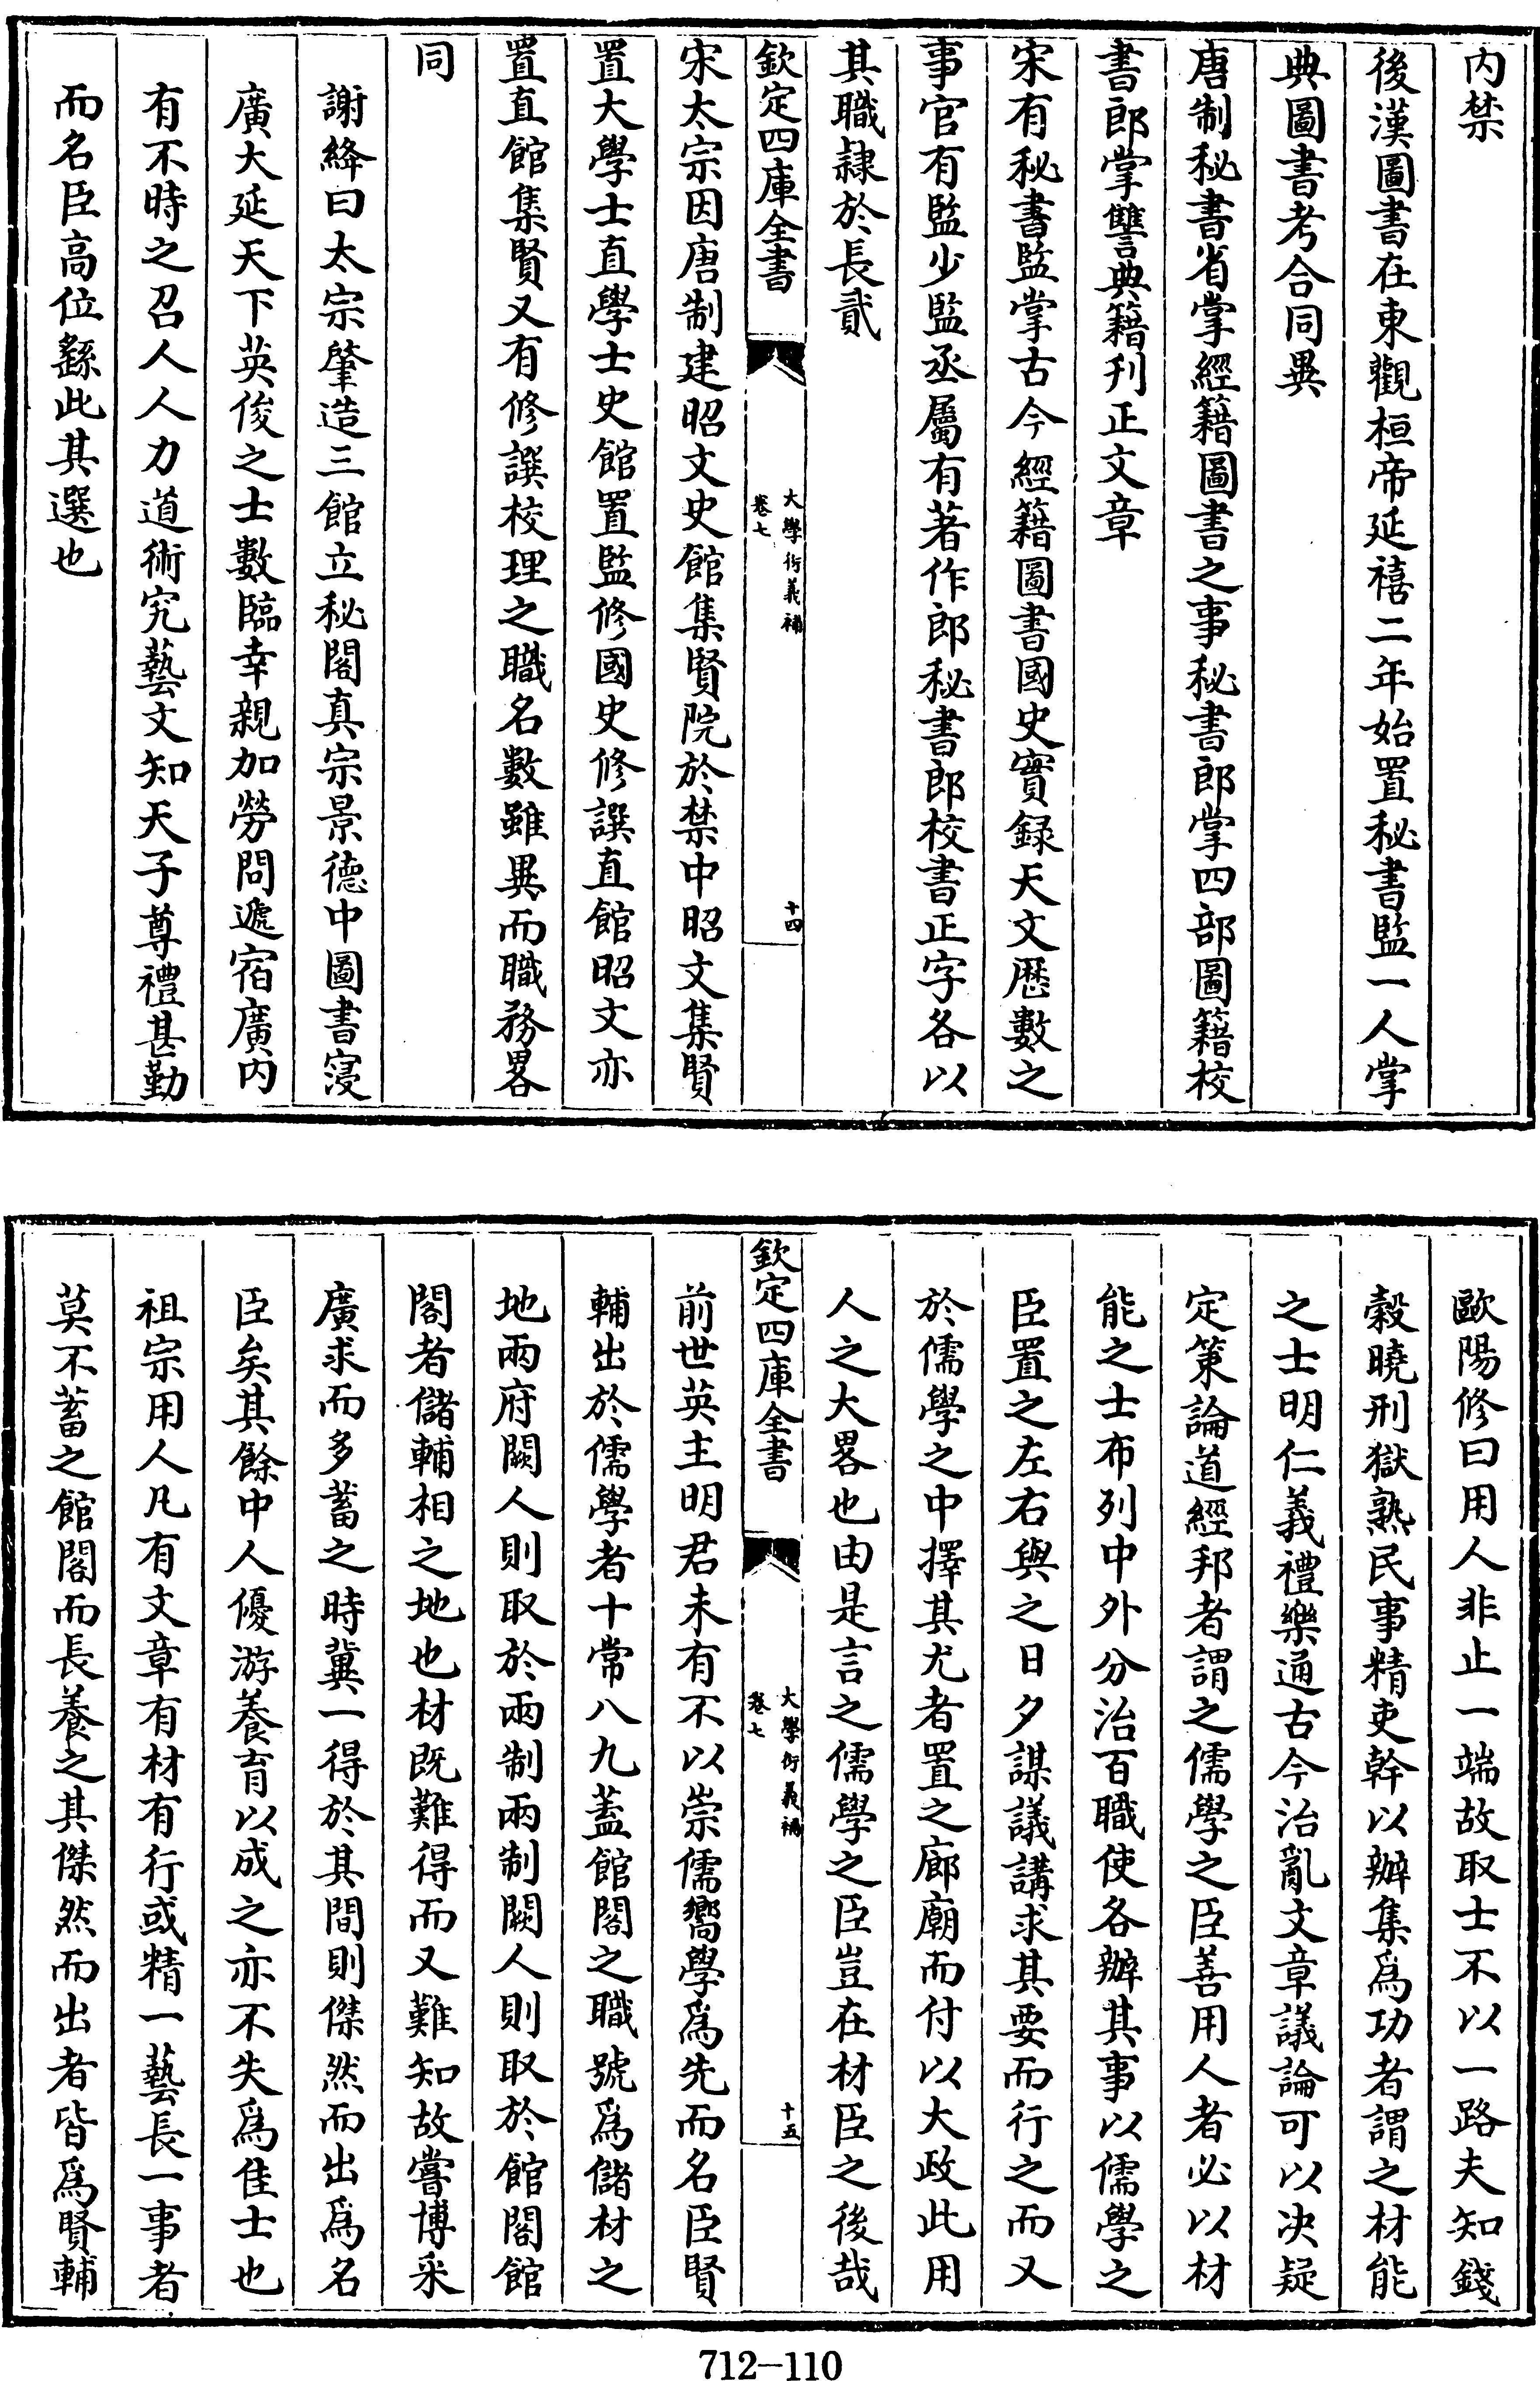 内禁
後漢圖書在東觀桓帝延禧二年始置秘書監一人掌
典圖書考合同異
唐制秘書省掌經籍圖書之事秘書郎掌四部圖籍校
書郎掌讐典籍刋正文章
宋有秘書監掌古今經籍圖書國史實録天文歴數之
事官有監少監丞屬有著作郎秘書郎校書正字各以
其職隷於長貳
欽定四庫全書
大學衍義補
卷七
十四
宋太宗因唐制建昭文史館集賢院於禁中昭文集賢
置大學士直學士史館置監修國史修譔直館昭文亦
置直館集賢又有修譔校理之職名數雖異而職務畧
同
謝絳曰太宗肇造三館立秘閣真宗景德中圖書寖
廣大延天下英俊之士數臨幸親加勞問遞宿廣内
有不時之召人人力道術究藝文知天子尊禮甚勤
而名臣高位繇此其選也
歐陽修曰用人非止一端故取士不以一路夫知錢
榖曉刑獄熟民事精吏幹以辦集爲功者謂之材能
之士明仁義禮樂通古今治亂文章議論可以决疑
定策論道經邦者謂之儒學之臣善用人者必以材
能之士布列中外分治百職使各辦其事以儒學之
臣置之左右與之日夕謀議講求其要而行之而又
於儒學之中擇其尤者置之廊廟而付以大政此用
人之大畧也由是言之儒學之臣豈在材臣之後哉
欽定四庫全書
大學衍義補
卷七
十五
前世英主明君未有不以崇儒嚮學爲先而名臣賢
輔出於儒學者十常八九蓋館閣之職號爲儲材之
地兩府闕人則取於兩制兩制闕人則取於館閣館
閣者儲輔相之地也材既難得而又難知故嘗博采
廣求而多蓄之時冀一得於其間則傑然而出爲名
臣矣其餘中人優游養育以成之亦不失爲佳士也
祖宗用人凡有文章有材有行或精一藝長一事者
莫不蓄之館閣而長養之其傑然而出者皆爲賢輔
712-110